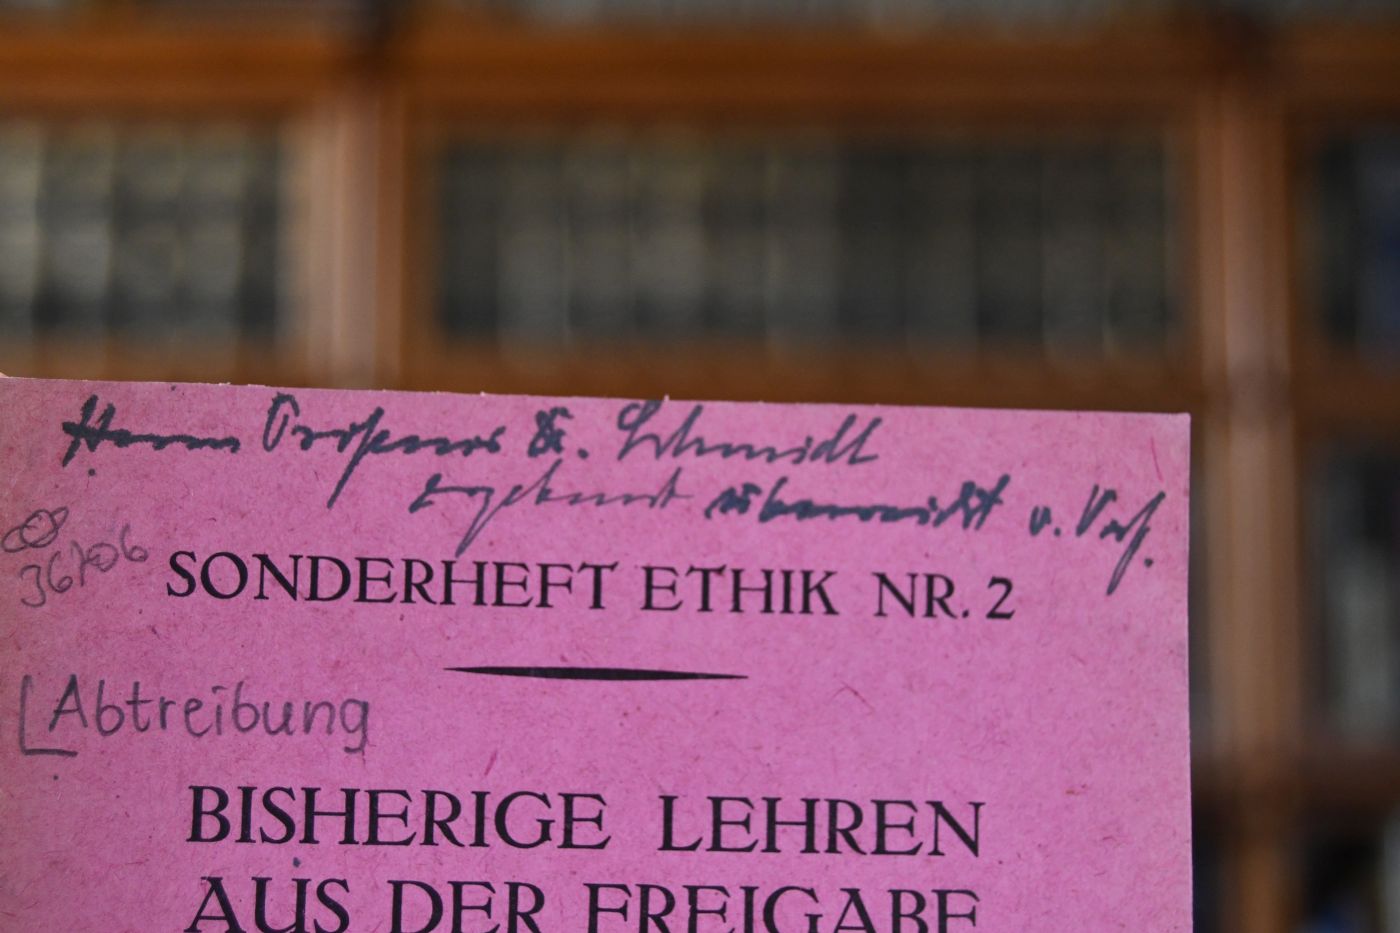 Herrn Professor Dr. Schmidt
ergebenst überreicht v. Verf.
36706
SONDERHEFT ETHIK NR. 2
[Abtreibung
BISHERIGE LEHREN
AUS DER FREIGABE